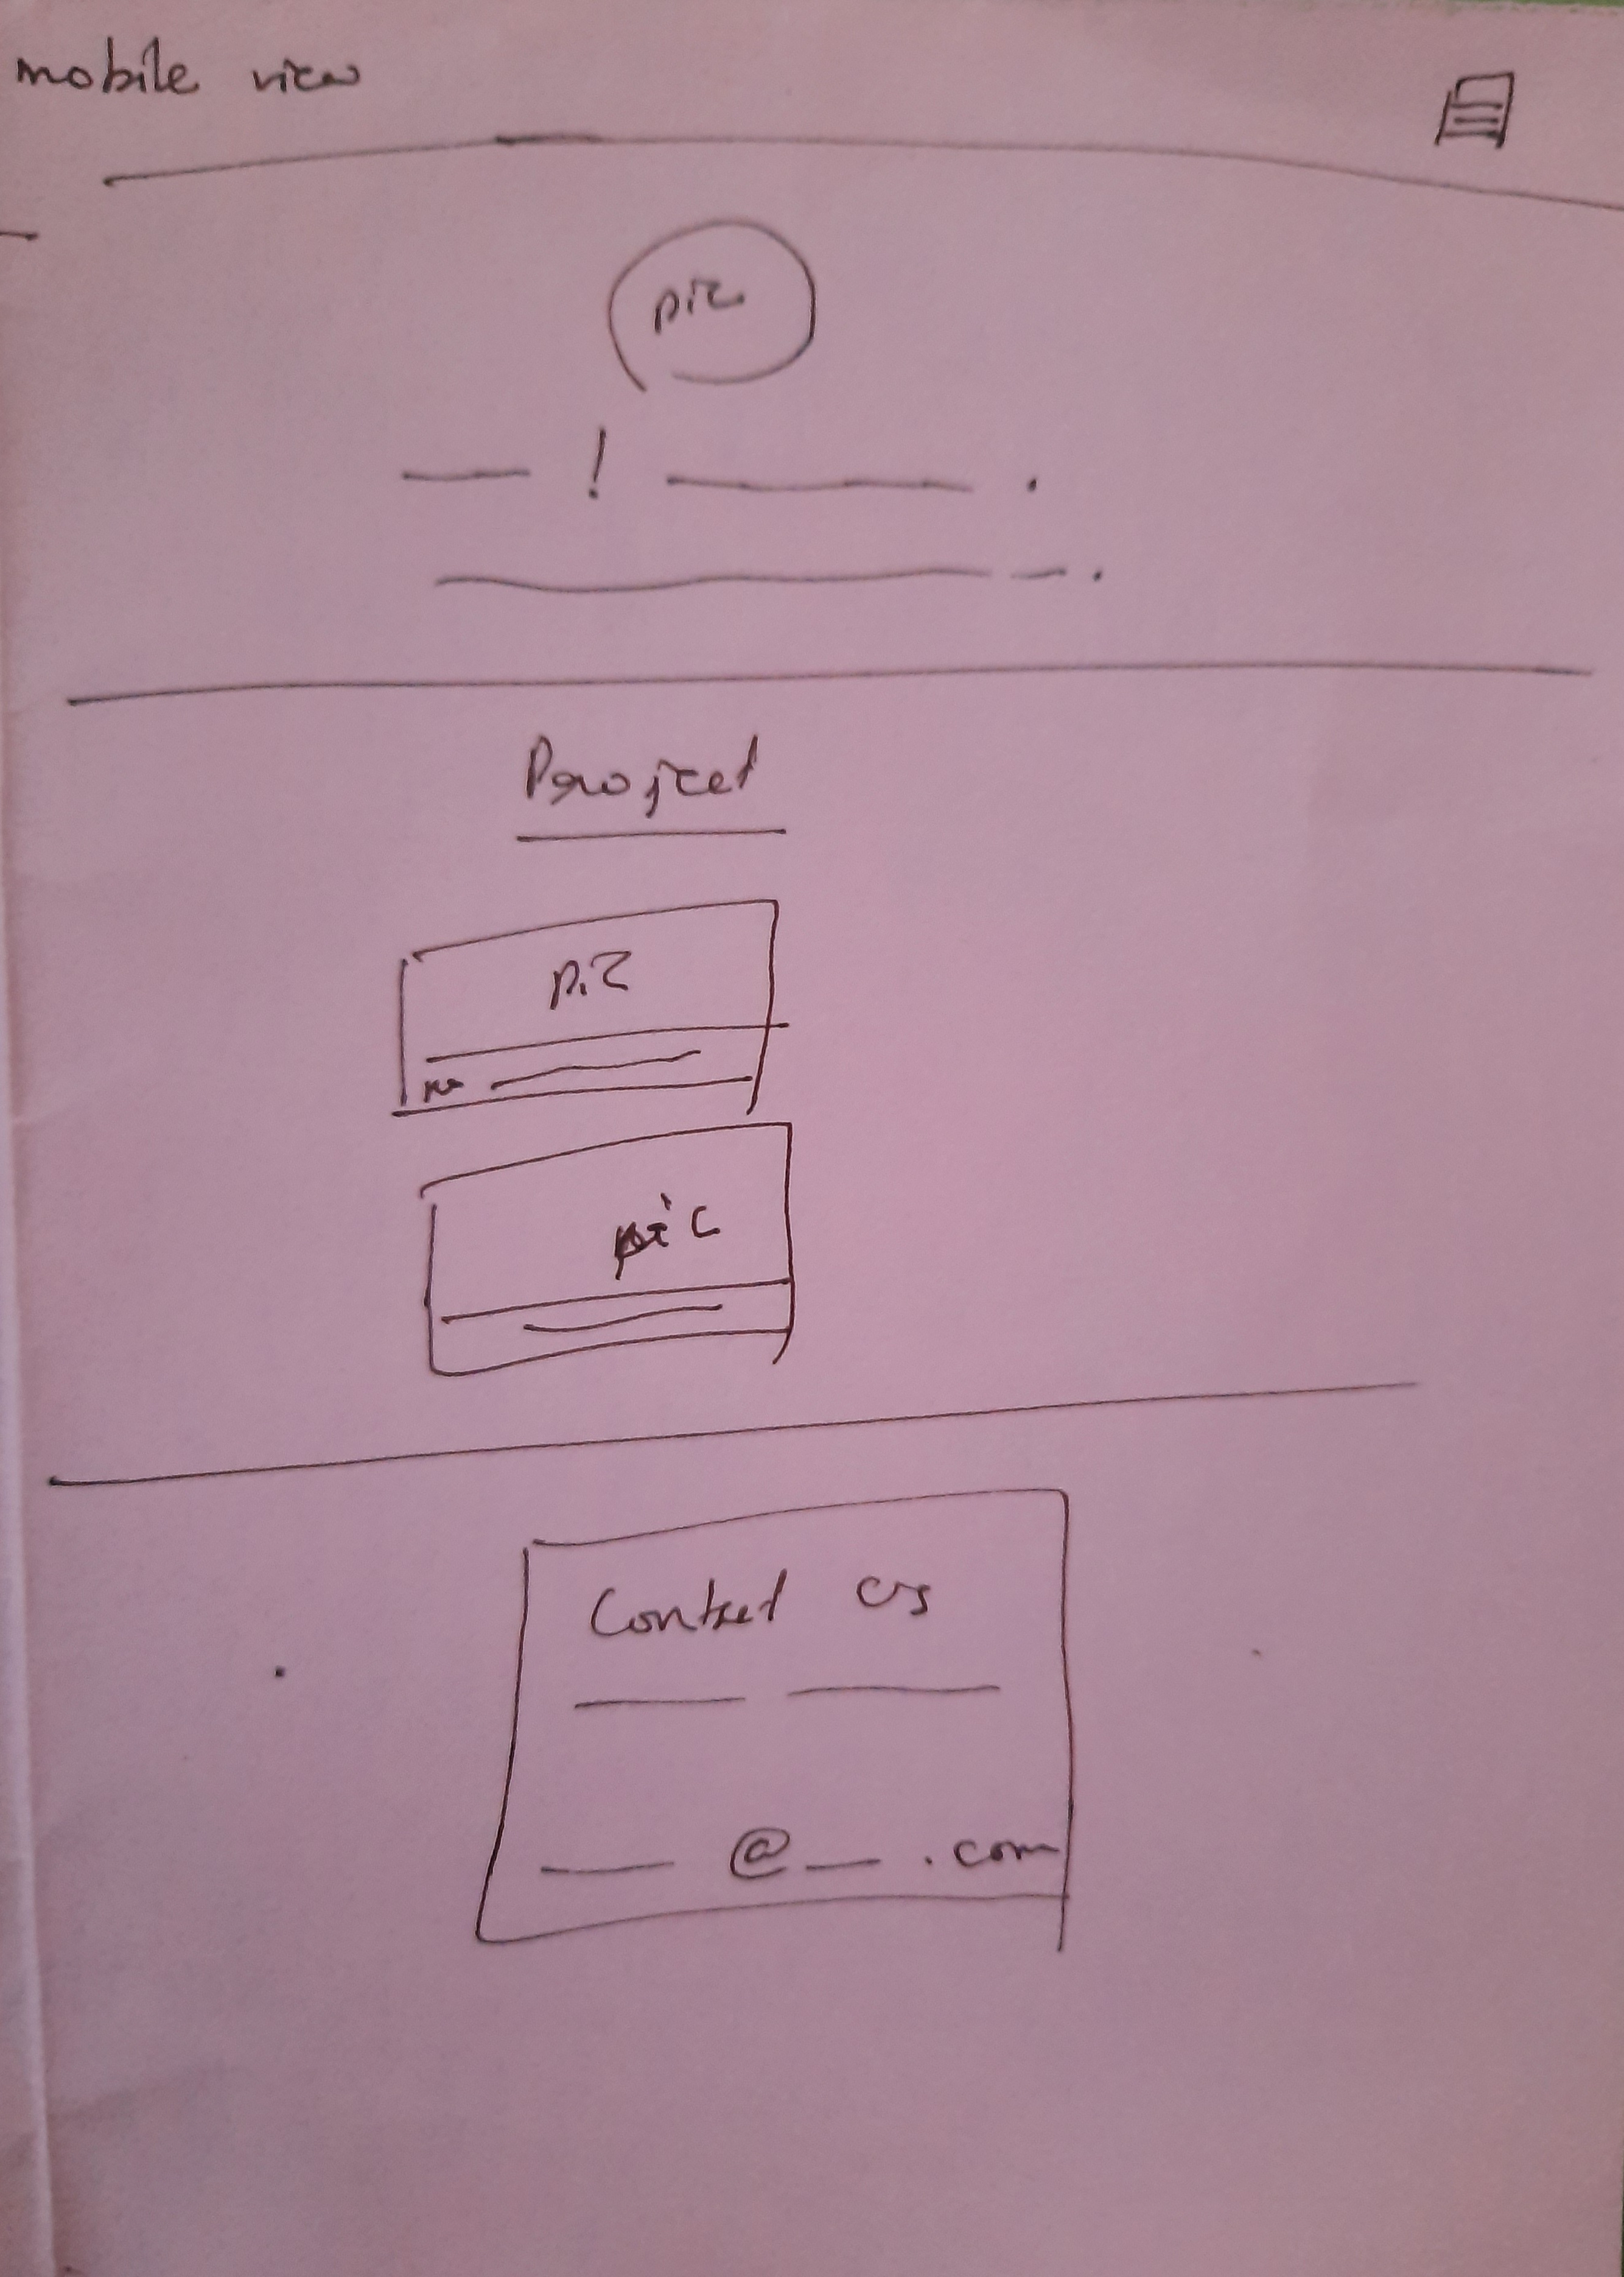 mobile view
pic
!
Project
pic
pic
Contact us
@ .com